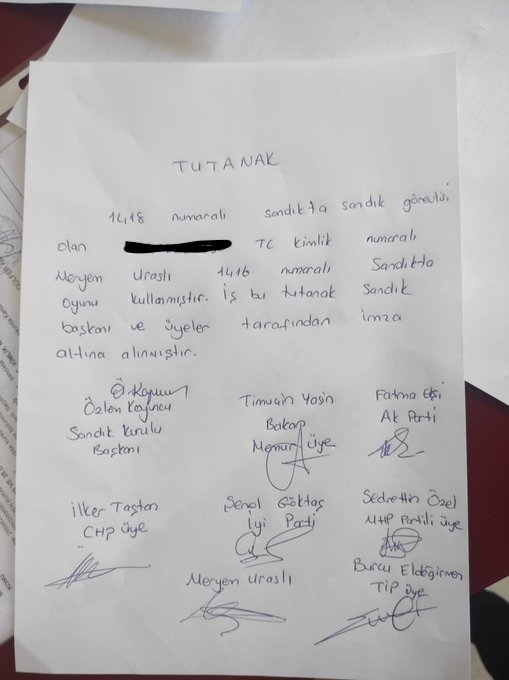 TUTANAK
1418 numaralı sandıkta sandık görevlisi
olan TC kimlik numaralı
Meryem Uraslı 1416 numaralı Sandıkta
oyunu kullanmıştır. İş bu tutanak sandık
başkanı ve üyeler tarafından imza
altına alınmıştır.
Özlem Koyuncu
Sandık Kurulu
Başkanı
Timuçin Yasin
Bakap
Memur üye
Fatma Elçi
Ak Parti
İlker Taştan
CHP üye
Şenol Göktaş
İyi Parti
Sedrettin Özel
MHP Partili üye
Meryem Uraslı
Burcu Eldöğirmen
TİP üye